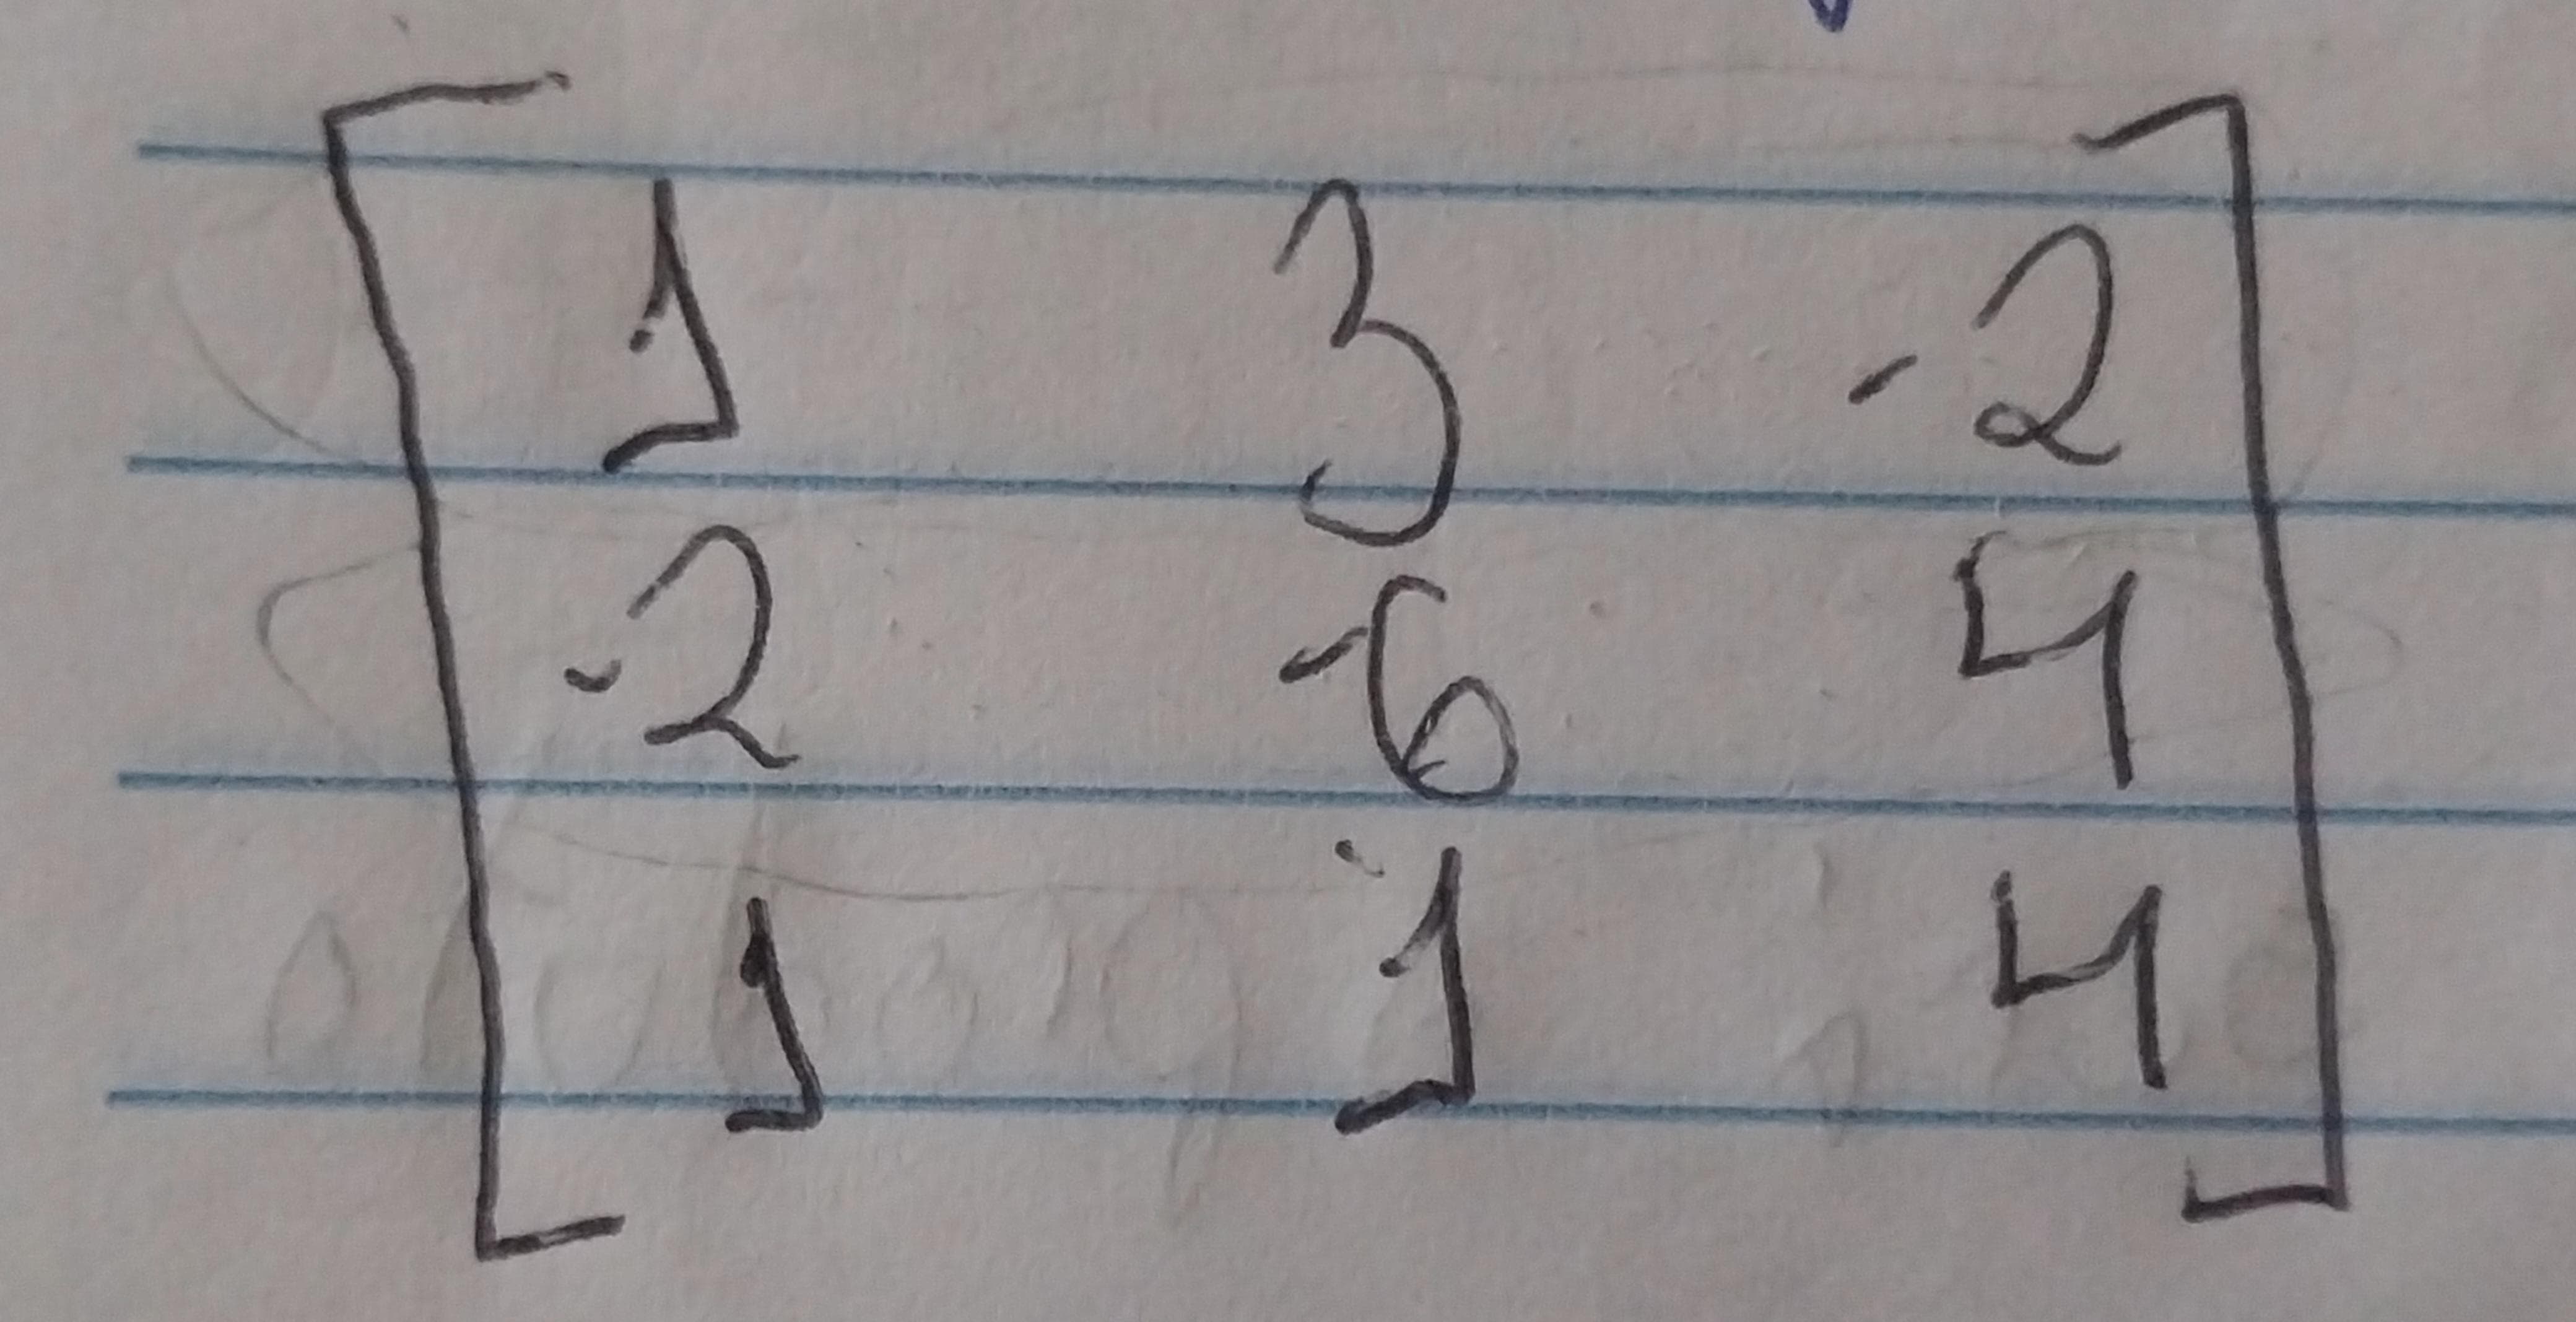 1 3 -2
-2 -6 4
1 1 4